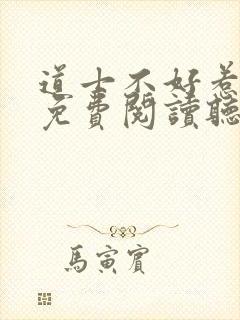 道士不好惹
免費閱讀聽
馬寅賓